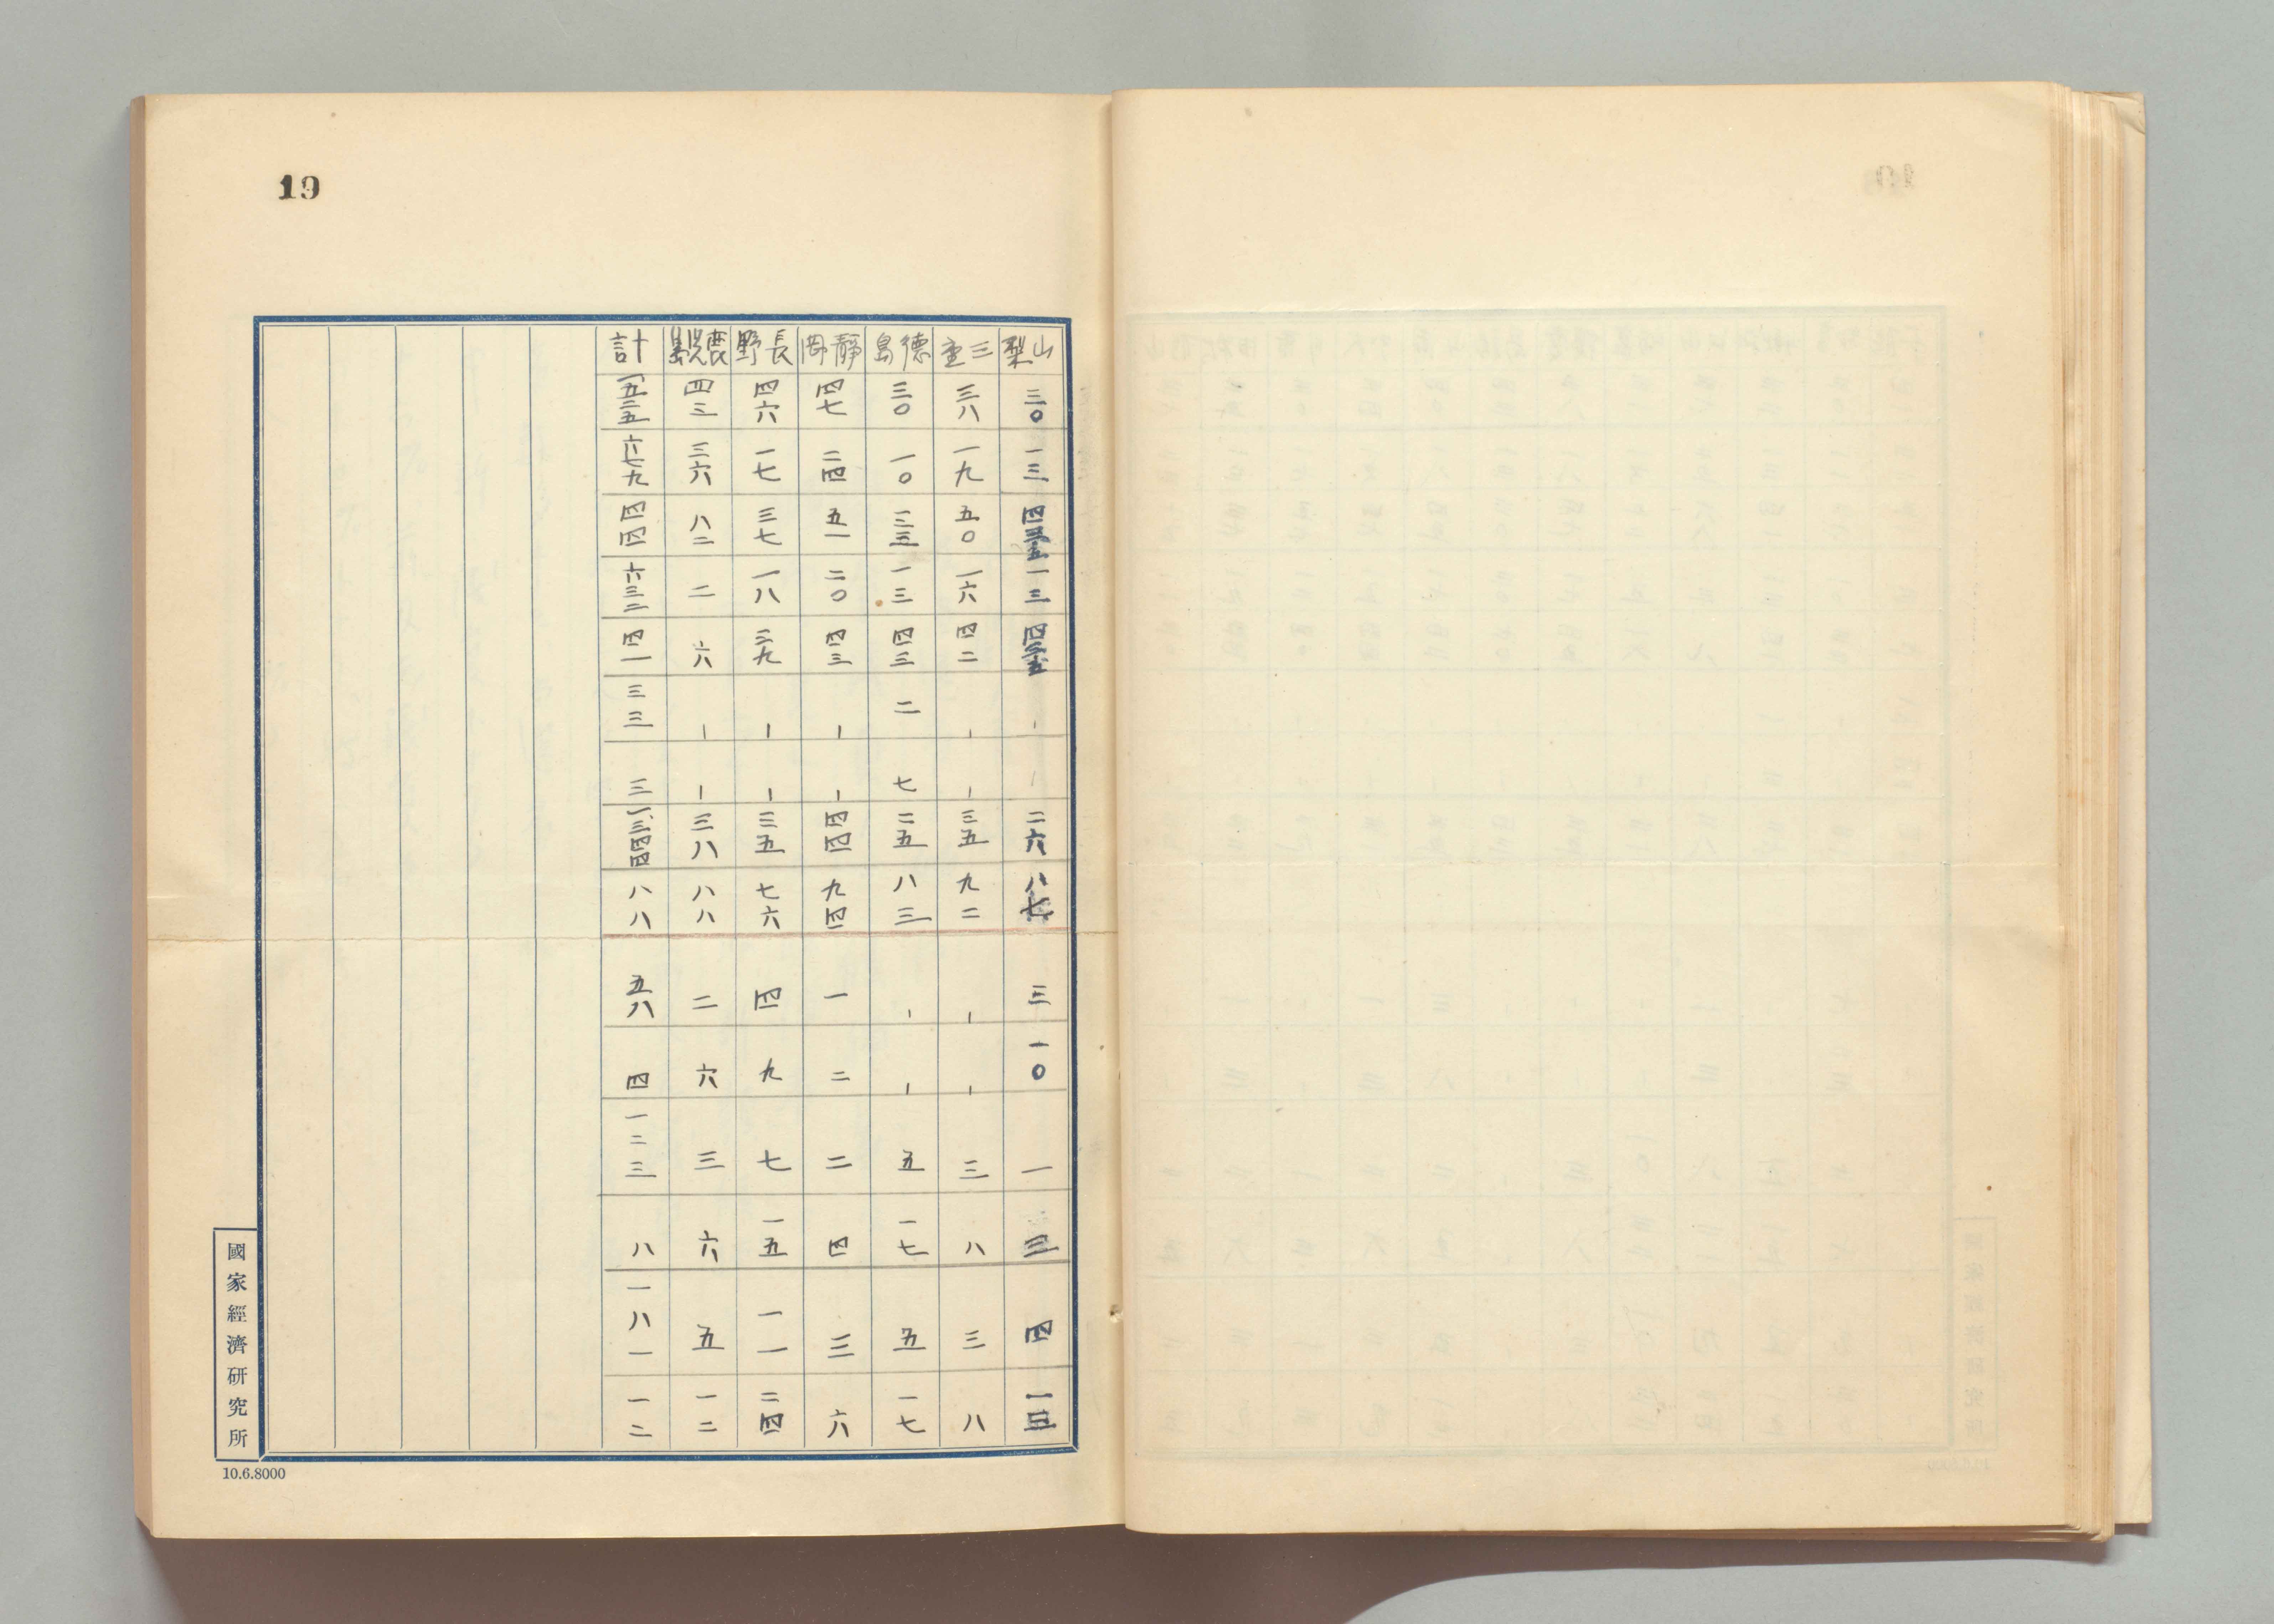 19
山梨 三〇 一三 四三 一三 四三 ー ー 二六 八七 三 一〇 一 三 四 一三
三重 三八 一九 五〇 一六 四二 ー ー 三五 九二 ー ー 三 八 三 八
徳島 三〇 一〇 三三 一三 四三 二 七 二五 八三 ー ー 五 一七 五 一七
靜岡 四七 二四 五一 二〇 四三 ー ー 四四 九四 一 二 二 四 三 六
長野 四六 一七 三七 一八 三九 ー ー 三五 七六 四 九 七 一五 一一 二四
鹿児島 四三 三六 八二 二 六 ー ー 三八 八八 二 六 三 六 五 一二
計 一、五三五 六七九 四四 六三二 四一 三三 三 一、三四四 八八 五八 四 一二三 八 一八一 一二
國家經濟研究所
10.6.8000